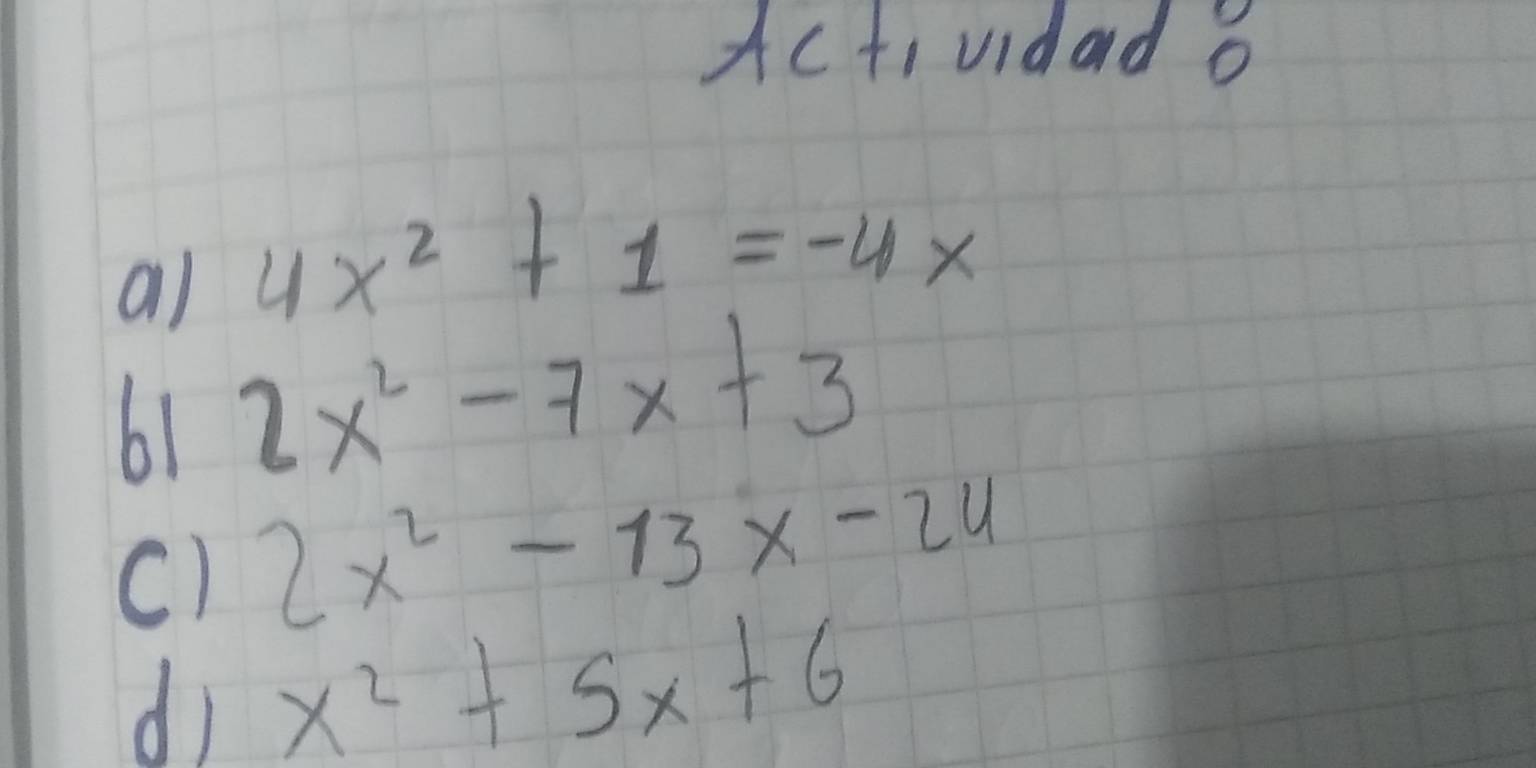 Actividad:
a) 4x² + 1 = -4x
b) 2x² - 7x + 3
c) 2x² - 13x - 24
d) x² + 5x + 6